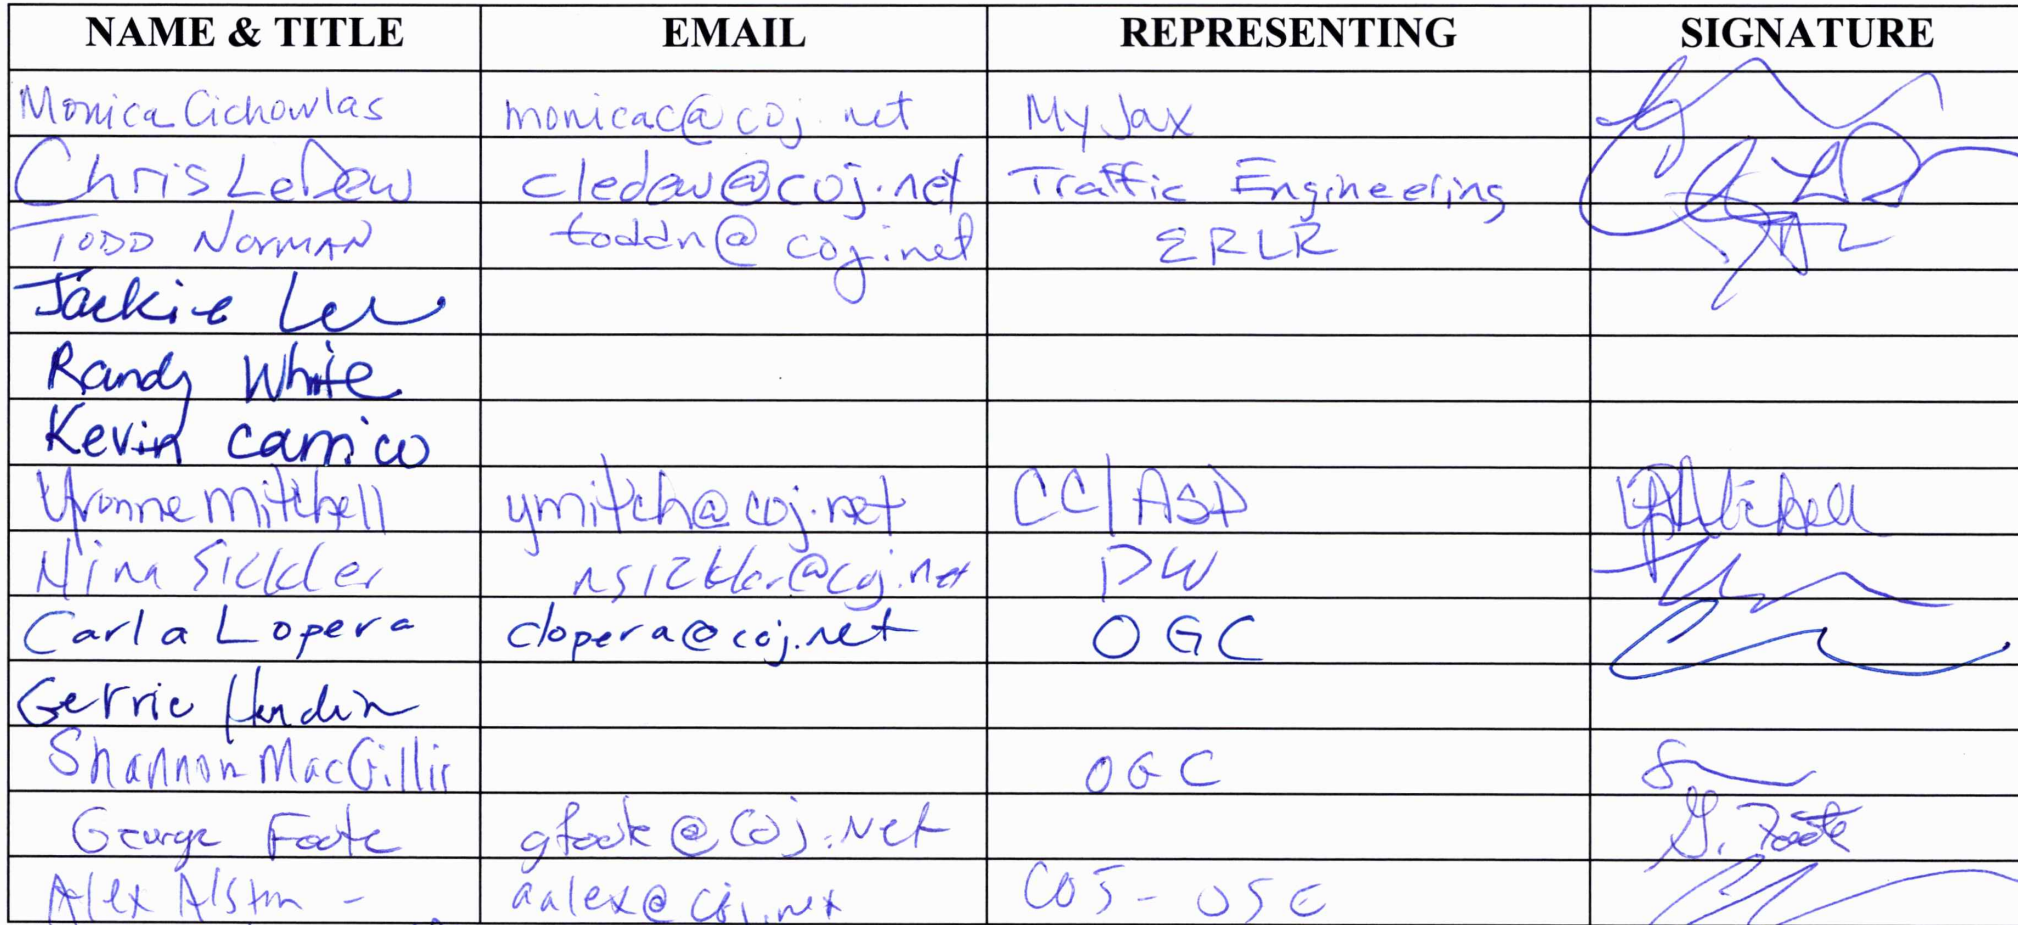 NAME & TITLE EMAIL REPRESENTING SIGNATURE
Monica Cichowlas monicac@coj.net MyJax
Chris LeDew cledew@coj.net Traffic Engineering
TODD NORMAN toddn@coj.net ERLR
Jackie Lee
Randy White
Kevin Carrico
Yvonne Mitchell ymitch@coj.net CC/ASD
Nina Sickler nsickler@coj.net PW
Carla Lopera clopera@coj.net OGC
Gerrie
Shannon MacGillis OGC
George Foote gfoote@coj.net G. Foote
Alex Alston - aalex@coj.net